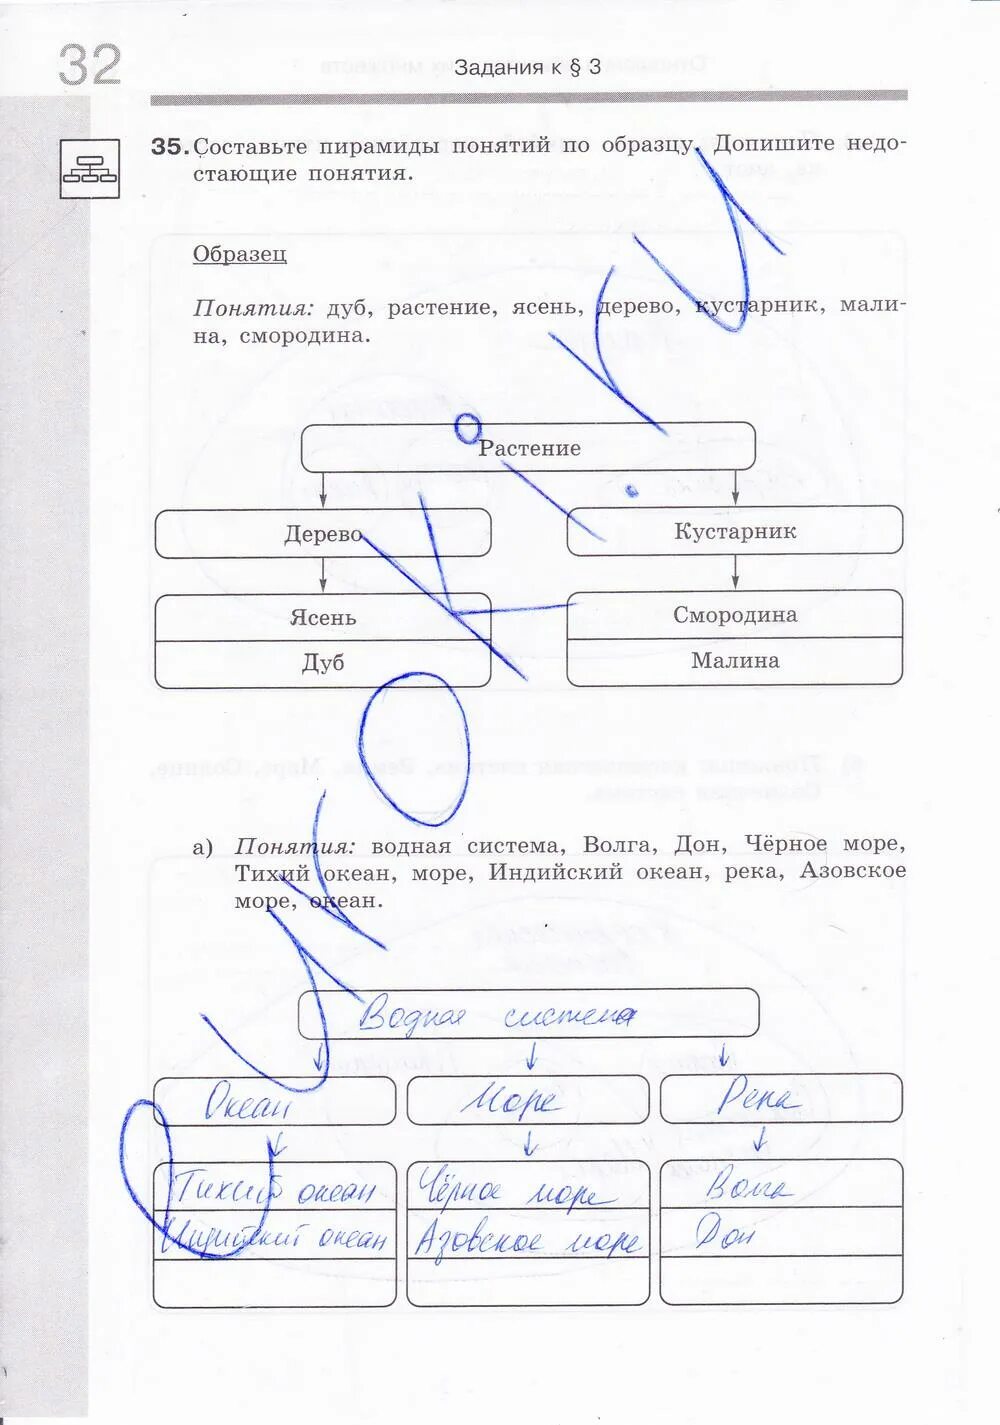 32
Задания к § 3
35. Составьте пирамиды понятий по образцу. Допишите недо-
стающие понятия.
Образец
Понятия: дуб, растение, ясень, дерево, кустарник, мали-
на, смородина.
Растение
Дерево
Кустарник
Ясень
Смородина
Дуб
Малина
а) Понятия: водная система, Волга, Дон, Чёрное море,
Тихий океан, море, Индийский океан, река, Азовское
море, океан.
Водная система
Океан
Море
Река
Тихий океан
Чёрное море
Волга
Индийский океан
Азовское море
Дон